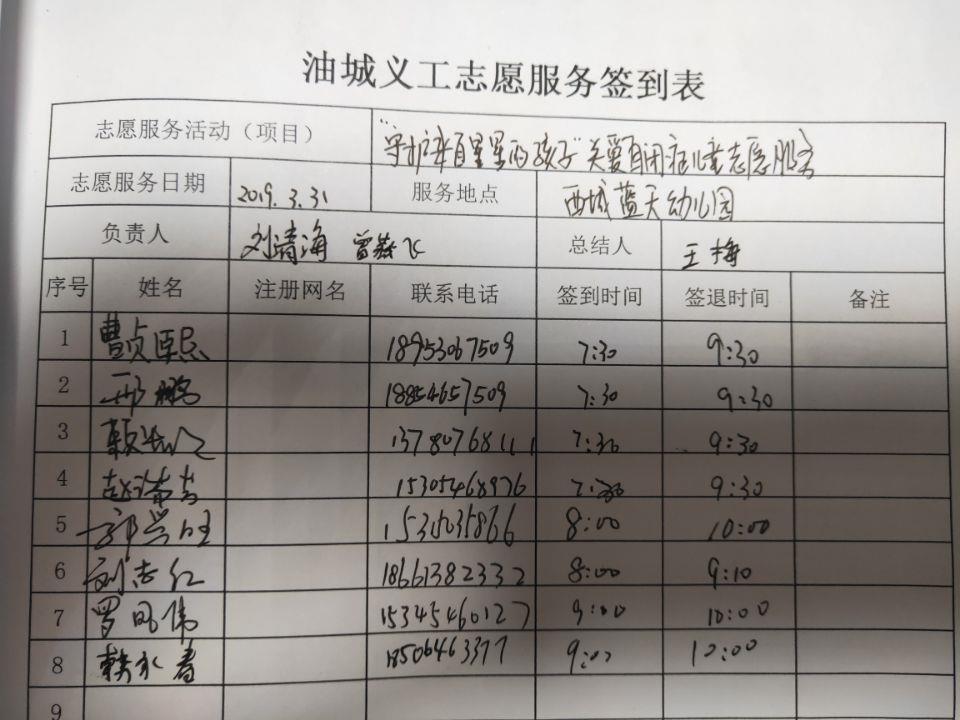 油城义工志愿服务签到表
志愿服务活动（项目） "守护来自星星的孩子"关爱自闭症儿童志愿服务
志愿服务日期 2019.3.31 服务地点 西城蓝天幼儿园
负责人 刘清海 曾燕飞 总结人 王梅
序号 姓名 注册网名 联系电话 签到时间 签退时间 备注
1 18953067509 7:30 9:30
2 邢鹏 18854657509 7:30 9:30
3 13780768111 7:30 9:30
4 15305468976 7:30 9:30
5 郭兴旺 8:00 10:00
6 刘志红 18661382332 8:00 9:10
7 罗凤伟 15345460127 9:00 10:00
8 韩永春 18506463377 9:00
9